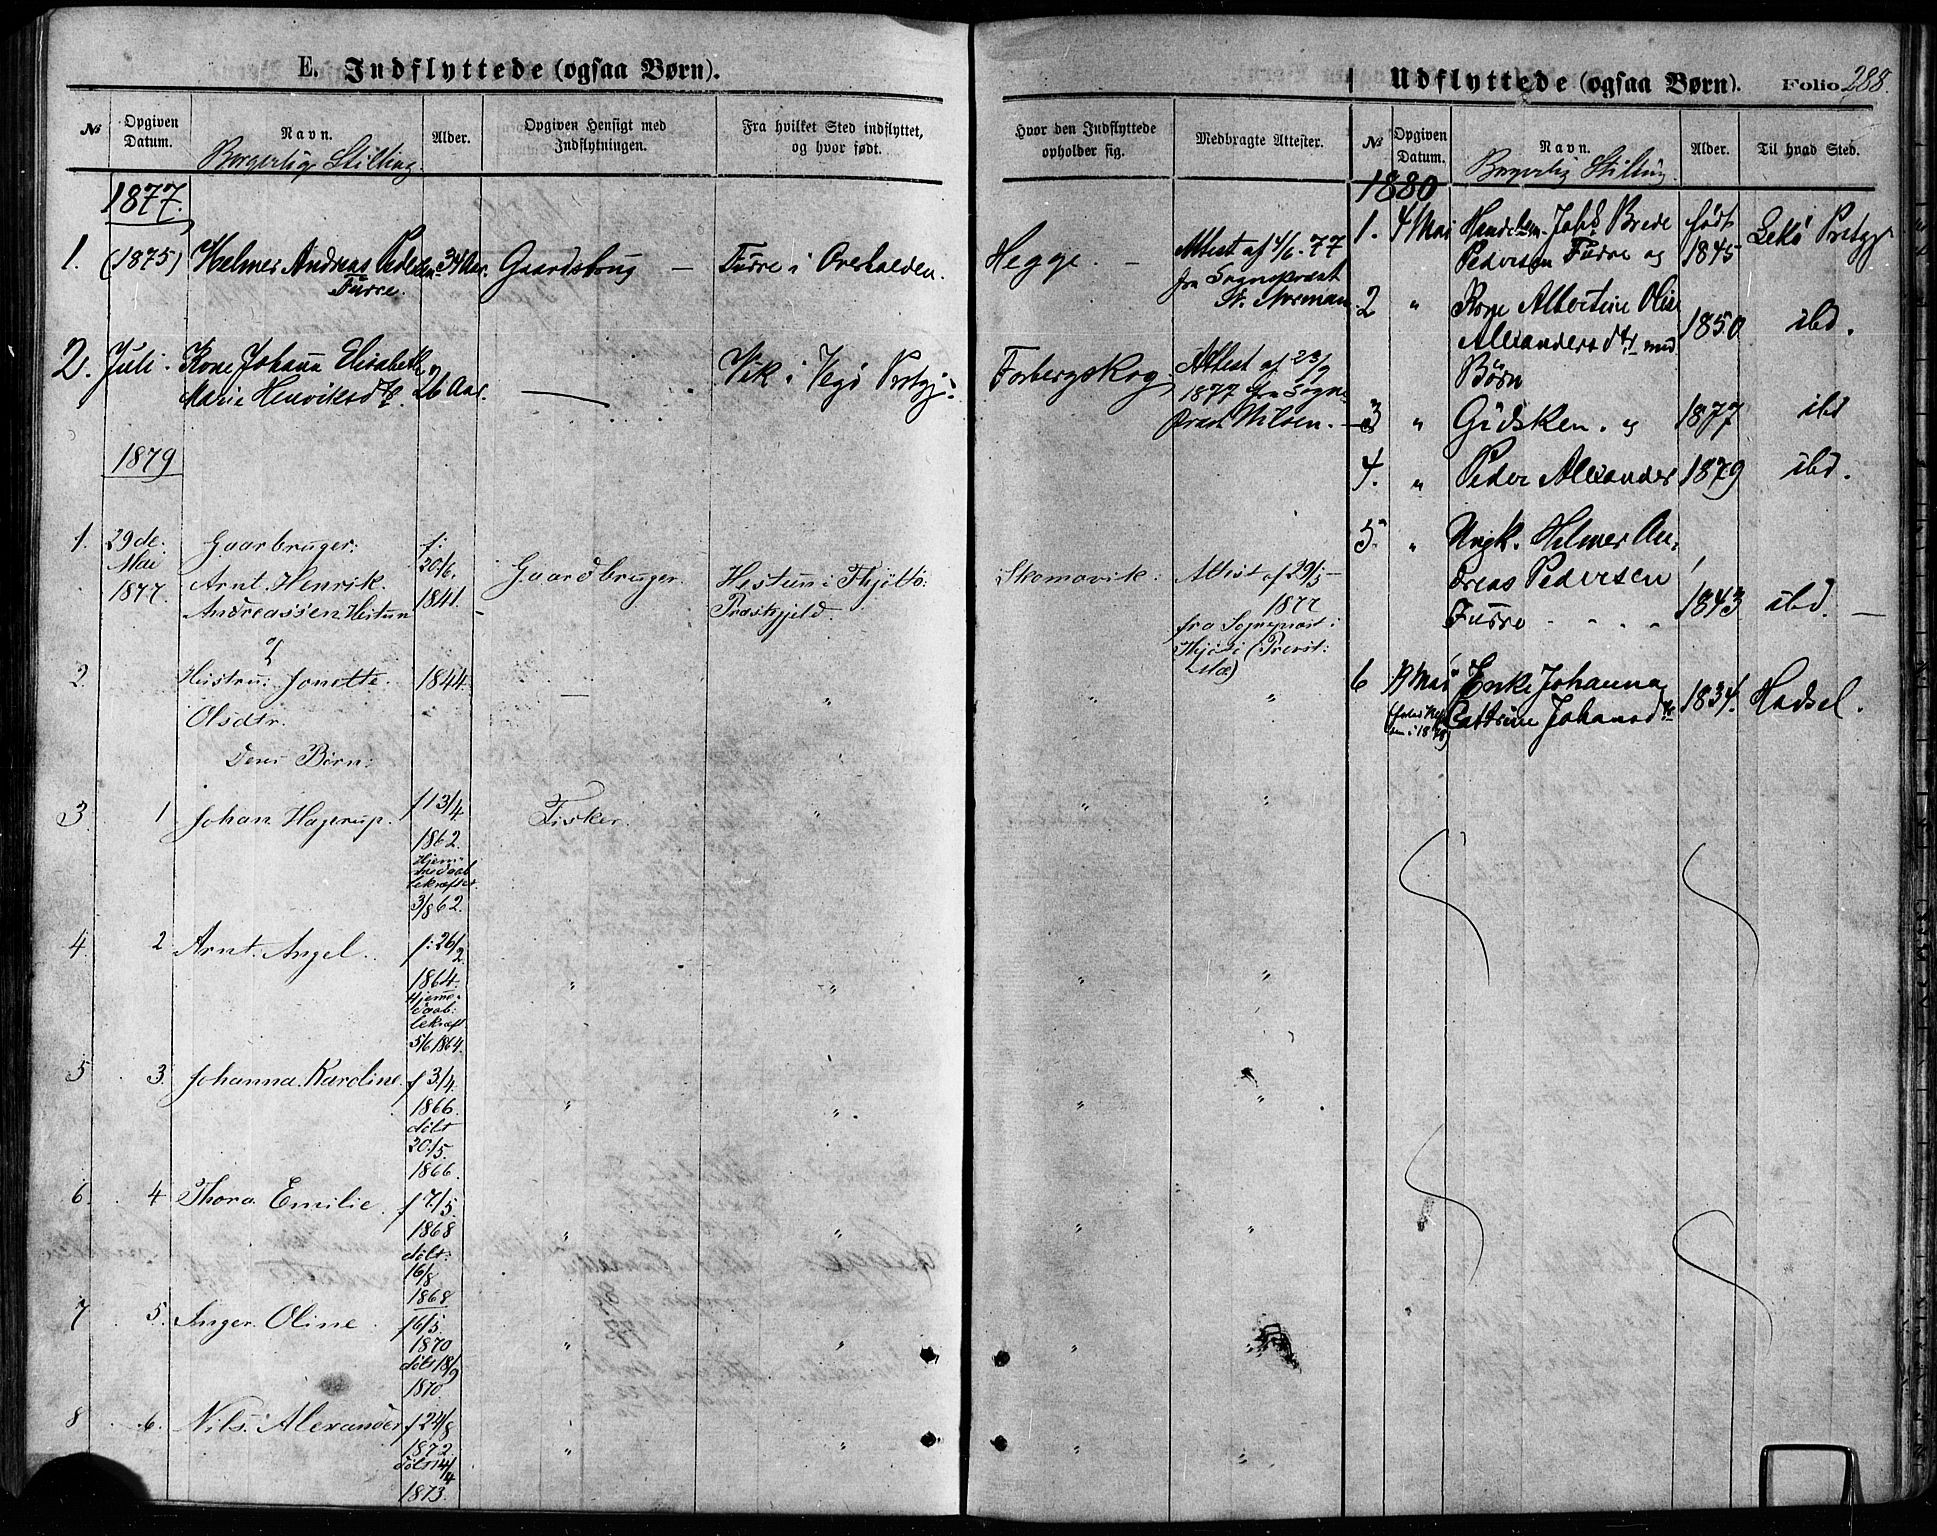 E. Indflyttede (ogsaa Børn).
№
Opgiven
Datum.
Navn.
Borgerlig Stilling.
Alder.
Opgiven Hensigt med
Indflytningen.
Fra hvilket Sted indflyttet,
og hvor født.
1877.
1. (1875) Helmer Andreas Pedersen 34 Aar. Gaardsbrug — Furre i Overhalden.
Furre.
2. Juli. Kone Johanna Elisabeth
Marie Henriksdtr. 26 Aar. — Vik i Vegø Prstgj.
1879
1. 29de Gaarbruger. f:
Mai 20/6.
1877. Arnt Henrik Gaardbruger. Hestun i Thjøttø
Andreassen Hestun 1841. Præstgjeld.
og
2. Hustru: Jonette 1844. — "
Olsdtr.
Deres Børn:
3. 1 Johan Hagerup. f 13/4 Fisker. "
1862.
Hjemme
bekræftet
3/8 62.
4. 2 Arnt Angel. f: 26/2 " "
1864.
Hjemme
daab:
bekræft
5/6 1864.
5 3. Johanna Karoline. f 3/4. " "
1866.
døbt
20/5.
1866.
6. 4 Thora Emilie. f 7/5. "
1868
døbt:
16/8
1868
7 5. Inger Oline f 6/5. " "
1870
døbt 18/9
1870.
8 6. Nils Alexander f 24/8 " "
1872.
døbt 14/4
1873.
Hvor den Indflyttede
opholder sig.
Medbragte Attester.
Hegge. — Attest af 4/6. 77
fra Sogneprest
Forbergskog. Attest af 23/9
1877 fra Sogne
præst Nilsen.
Skomovik. Attest af 29/5 —
1877
fra Sognepræst i
Thjøtø
" "
" "
" "
" "
" "
"
" "
Udflyttede (ogsaa Børn).
Folio 288.
№
Opgiven
Datum.
Navn.
Borgerlig Stilling
Alder.
Til hvad Sted.
1880
1. 4 Mai Handelsm. Jakb Brede født Lekø Prstgj.
Pedersen Furre og 1845
2 " Kone Albertine Oline
Alexandersdtr med 1850 ibd.
Børn
3 " Gidsken. og 1877 ibd
4. " Peder Alexander 1879 ibd.
5. " Ungk. Helmer An-
dreas Pedersen
Furre 1843 ibd. —
6 Mai Enke Johanna 1834. Hadsel.
Cathrine Johansdtr